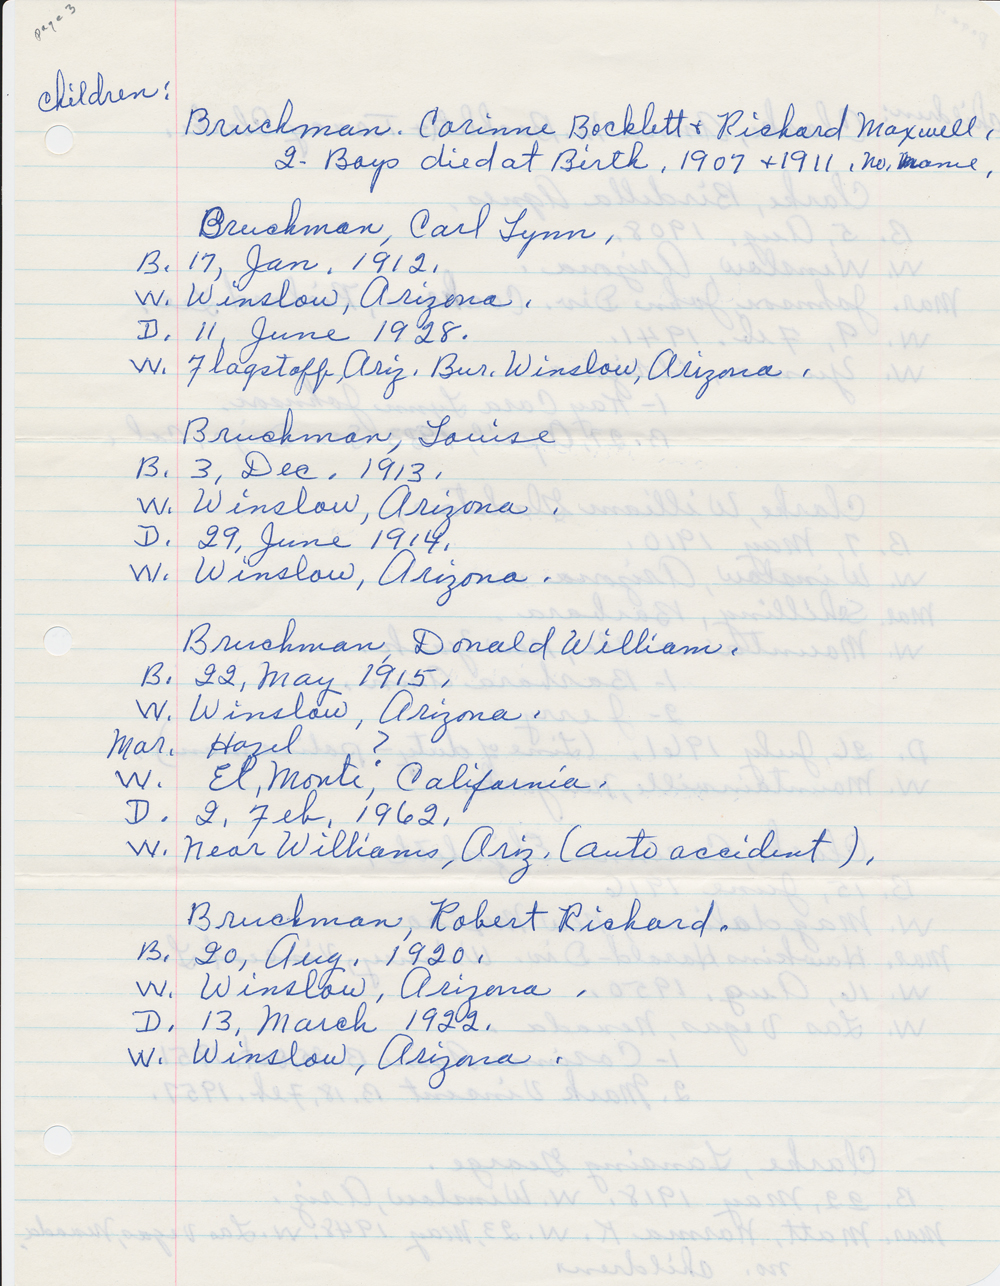 page 3
children:
Bruchman. Corinne Bocklett + Richard Maxwell,
2- Boys died at Birth, 1907 + 1911, no name,
Bruchman, Carl Lynn,
B. 17, Jan. 1912.
W. Winslow, Arizona.
D. 11, June 1928.
W. Flagstaff, Ariz. Bur. Winslow, Arizona.
Bruchman, Louise
B. 3, Dec. 1913.
W. Winslow, Arizona.
D. 29, June 1914.
W. Winslow, Arizona.
Bruchman, Donald William.
B. 22, May 1915.
W. Winslow, Arizona.
Mar. Hazel ?
W. El, Monti, California.
D. 2, Feb, 1962.
W. near Williams, Ariz. (auto accident),
Bruchman, Robert Richard.
B. 20, Aug. 1920.
W. Winslow, Arizona.
D. 13, March 1922.
W. Winslow, Arizona.